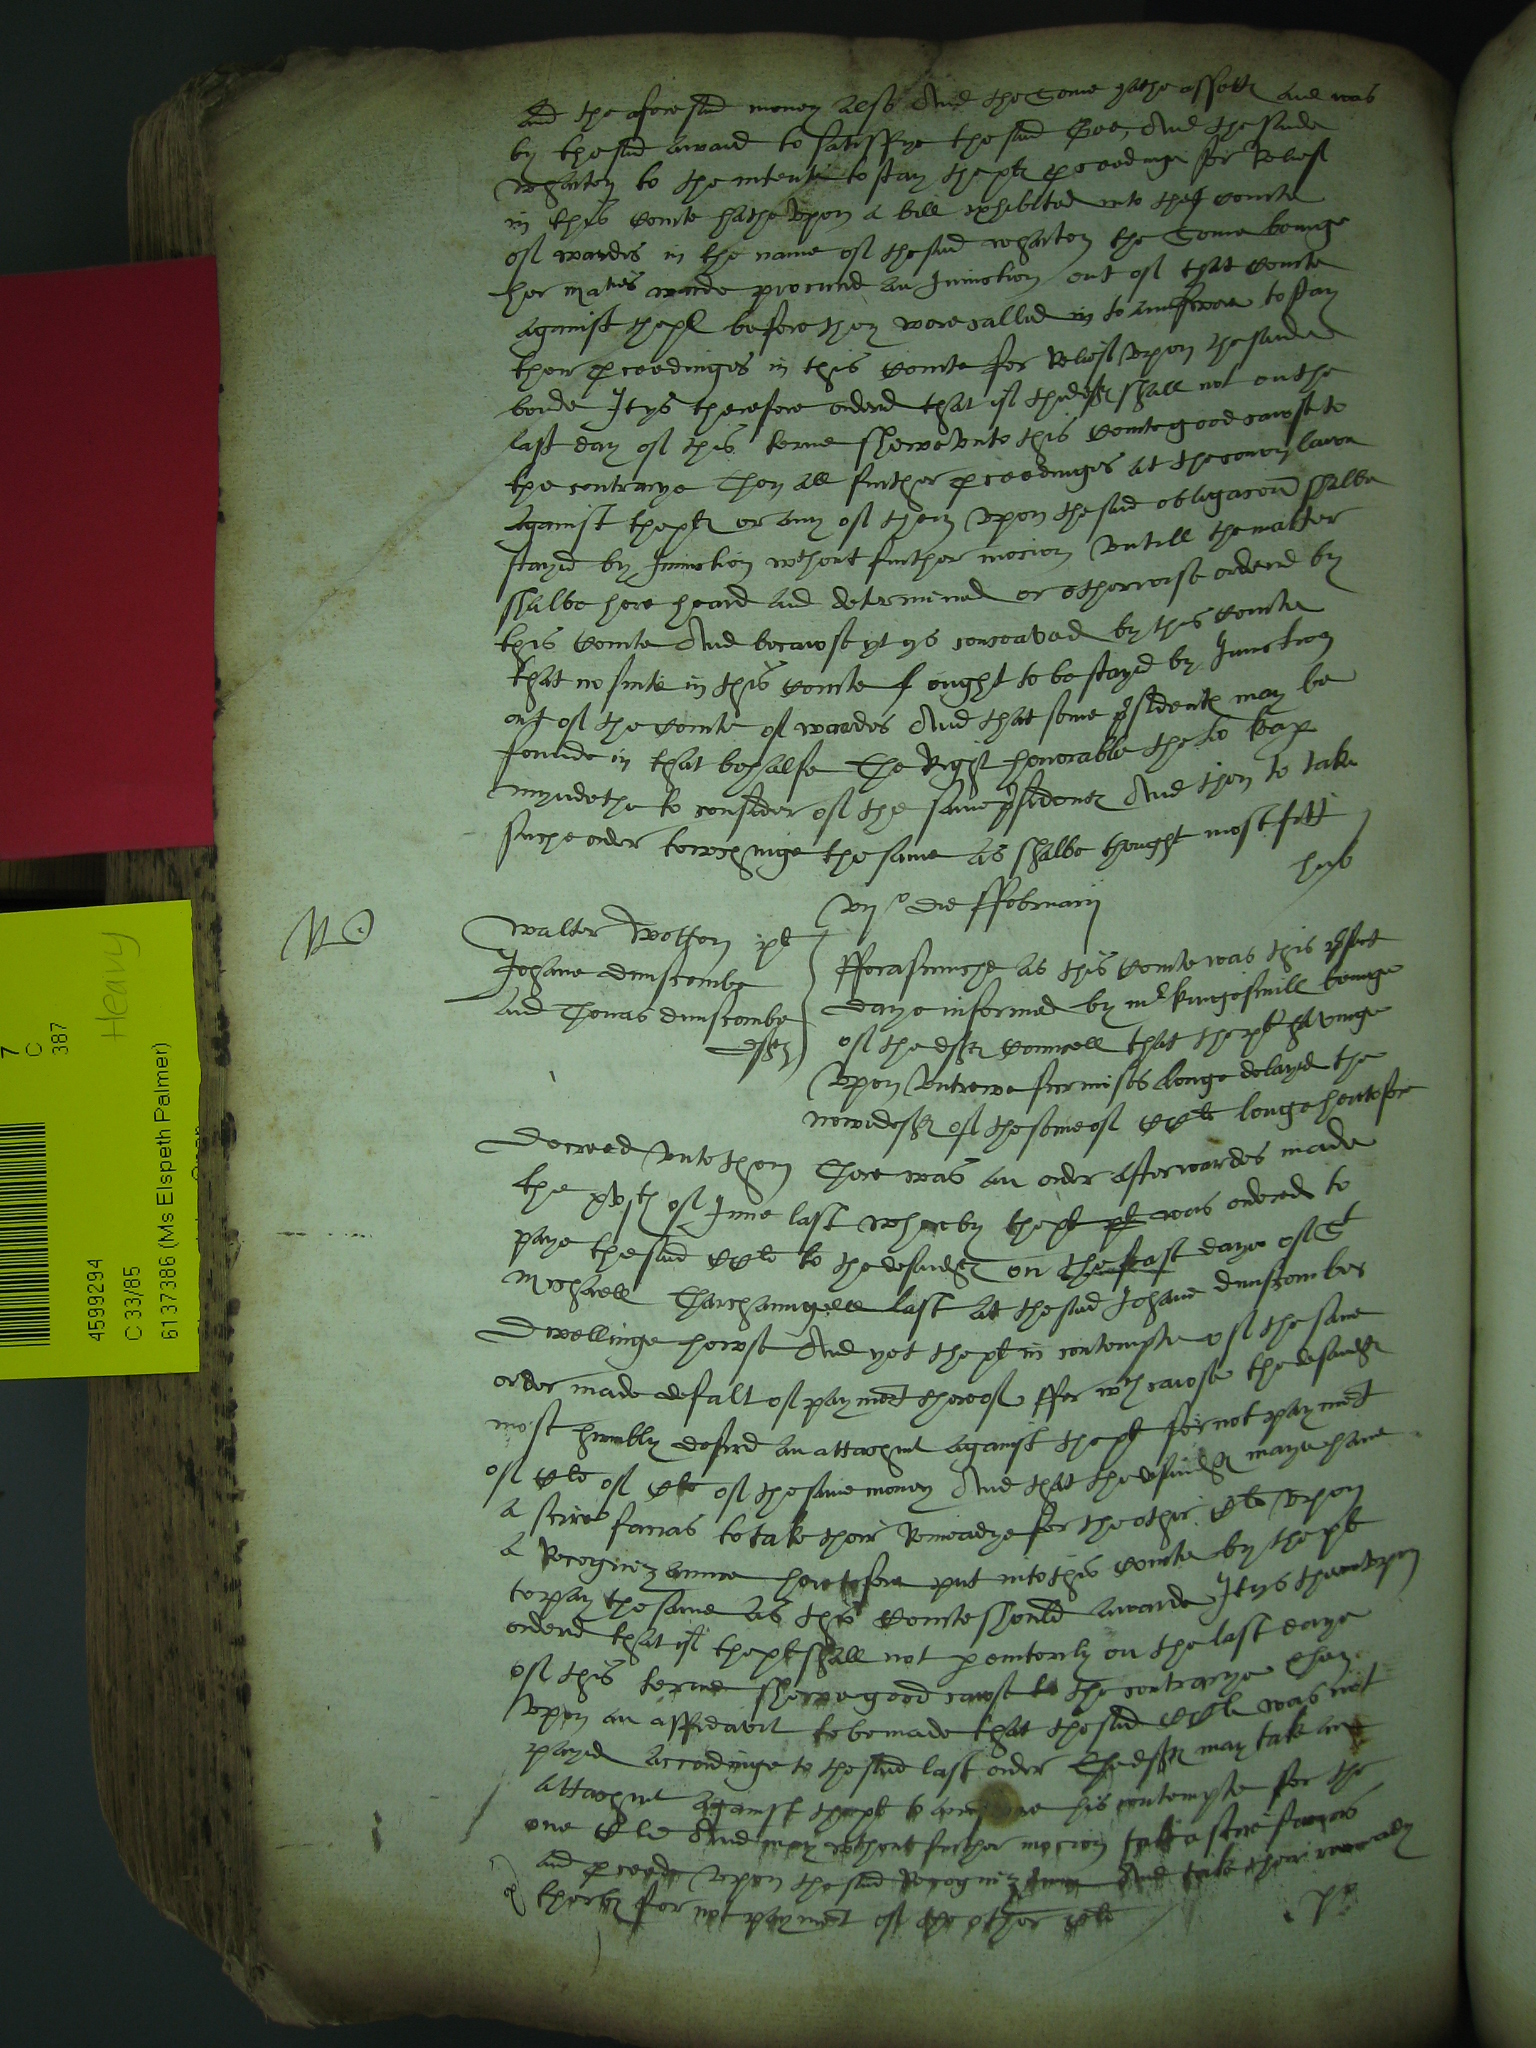 and the aforesaid money also And the Some hathe assette and was
by thesaid award to satisffye the said And thesaide
wharton to the intente to stay theplt pceedinge for Relief
in this Courte hathe upon a bill exhibited into the Courte
of wardes in the name of thesaid wharton the Sonne beinge
her maties warde procured an Iniunction out of that Courte
against theplt before they were called in to aunswere to stay
their pceedinges in this Courte for Relief upon thesaide
bonde It ys therefore ordered that if thedeftes shall not on the
last day of this terme shewe unto this Courte good cawse to
the contrarye Then all further pceedinges at the comon lawe
against theplt or any of them upon thesaid obligacon shalbe
stayed by Iniunction wthout further mocion untill the matter
shalbe here heard and determined or otherwise ordered by
this Courte And becawse yt ys conceaved by this Courte
that no suite in this Courte ought to be stayed by Iniunction
out of the Courte of wardes And that some psidentes may be
founde in that behalfe The Right honorable the lo keap
myndethe to consider of the same psidentes And then to take
suche order towchinge the same as shalbe thought most fitt
vijo die ffebruarij
Walter Wotton plt
Johane dunscombe
and Thomas dunscombe
deftes
fforasmuche as this Courte was this psent
daye informed by mr kingesmill beinge
of the deftes Councell that theplt havinge
upon untrewe surmises longe delayed the
now deftes of the some of xxli longe heretofore
decreed unto them There was an order afterwardes made
the xvth of June last whereby theplt plt was ordered to
paye thesaid xxli to the defendtes on the feast daye of St
Michaell Tharchaungell last at thesaid Johane dunscombes
dwellinge howse And yet theplt in contempte of the same
order made defalt of paymet thereof ffor wch cawse the defendtes
most humbly desired an attachmt against theplt for not paymet
of xli of xli of the same money And that the defendtes maye have
a scire facias to take their Remeadye for the other xli upon
a Recognizaunce heretofore put into this Courte by theplt
to pay the same as this Courte should awarde It ys thereupon
ordered that if theplt shall not pemtorily on the last daye
of this terme shewe good cawse to the contrarye Then
upon an affidavit to be made that thesaid xxli was not
payed accordinge to thesaid last order Thedeftes may take an
attachmt against theplt to aunswere his contempte for the
one xli And may wthout further mocion take a scire facias
and pceede upon thesaid Recognizaunce And take their remeady
therby for not paymet of the other xli
Heavy
7
C
387
4599294
C 33/85
61137386 (Ms Elspeth Palmer)